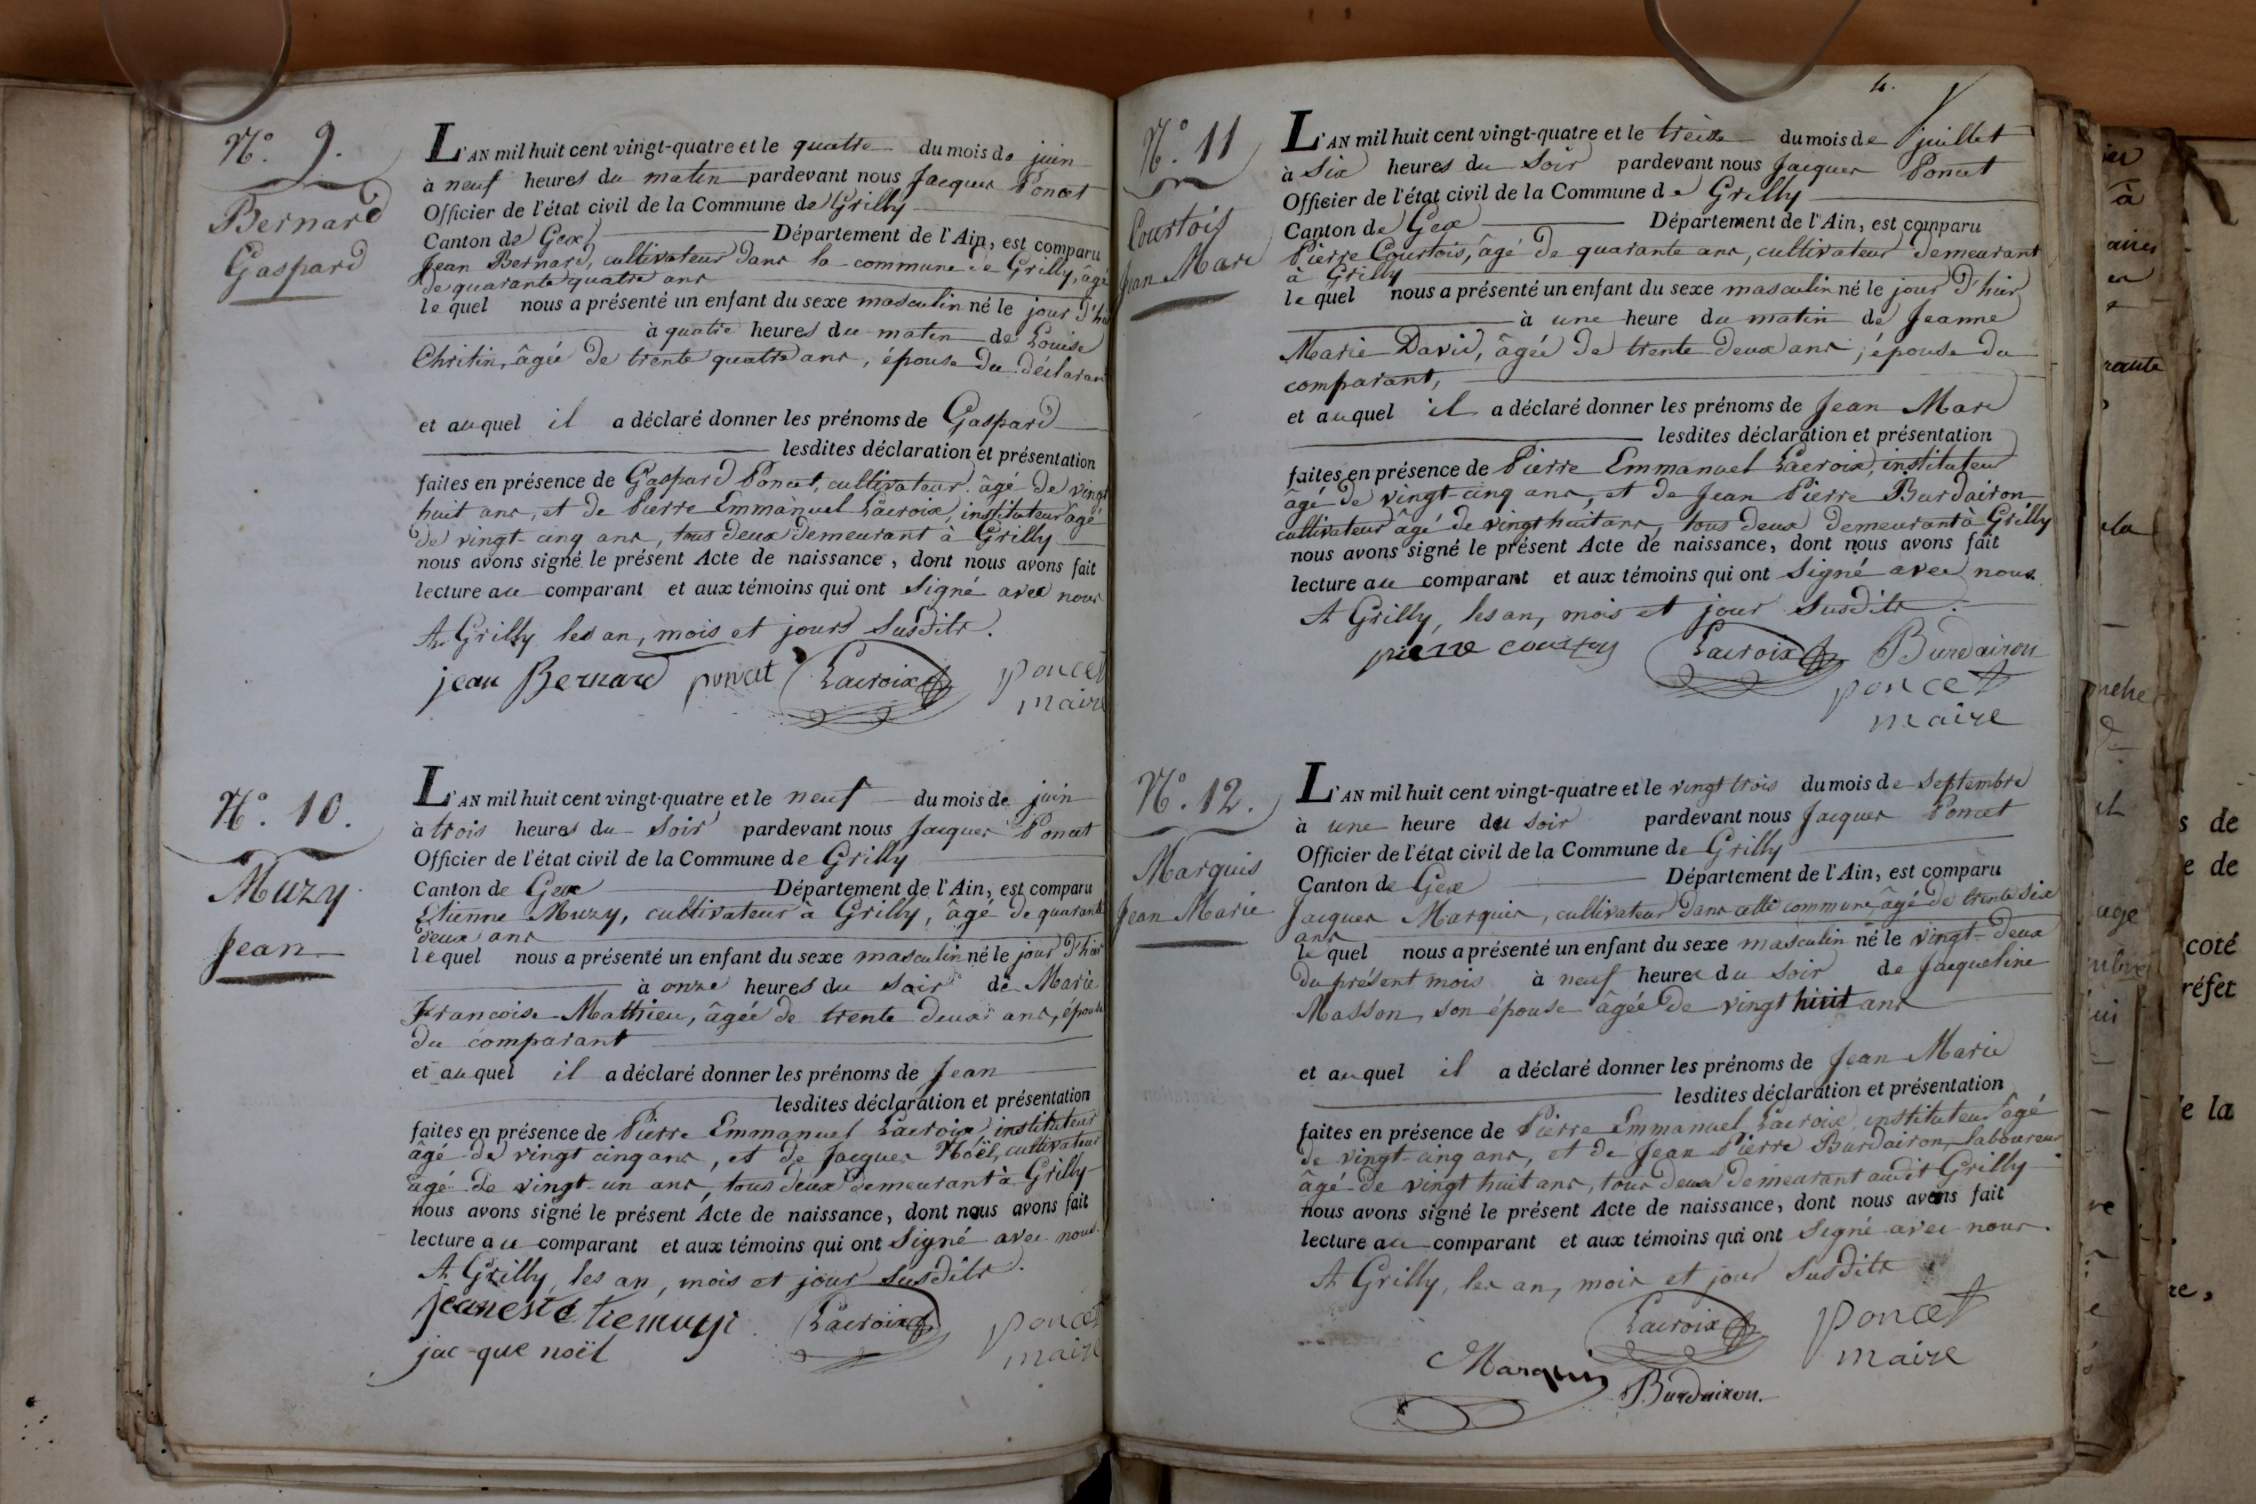 N.° 9.
Bernard
Gaspard
L'AN mil huit cent vingt-quatre et le quatre du mois de juin
à neuf heures du matin pardevant nous Jacques Poncet
Officier de l'état civil de la Commune de Grilly
Canton de Gex Département de l'Ain, est comparu
Jean Bernard, cultivateur dans la commune de Grilly, âgé
de quarante quatre ans
le quel nous a présenté un enfant du sexe masculin né le jour d'hier
à quatre heures du matin de Louise
Chritin, âgée de trente quatre ans, épouse du déclarant
et auquel il a déclaré donner les prénoms de Gaspard
lesdites déclaration et présentation
faites en présence de Gaspard Poncet, cultivateur âgé de vingt
huit ans, et de Pierre Emmanuel Lacroix, instituteur âgé
de vingt-cinq ans, tous deux demeurant à Grilly
nous avons signé le présent Acte de naissance, dont nous avons fait
lecture au comparant et aux témoins qui ont signé avec nous
A Grilly les an, mois et jours susdits.
jean Bernard poncet Lacroix poncet
maire
N.° 10.
Muzy
Jean
L'AN mil huit cent vingt-quatre et le neuf du mois de juin
à trois heures du soir pardevant nous Jacques Poncet
Officier de l'état civil de la Commune de Grilly
Canton de Gex Département de l'Ain, est comparu
Etienne Muzy, cultivateur à Grilly, âgé de quarante
deux ans
lequel nous a présenté un enfant du sexe masculin né le jour d'hier
à onze heures du soir de Marie
Francoise Mathieu, âgée de trente deux ans, épouse
du comparant
et auquel il a déclaré donner les prénoms de Jean
lesdites déclaration et présentation
faites en présence de Pierre Emmanuel Lacroix instituteur
âgé de vingt cinq ans, et de Jacques Noël, cultivateur
âgé de vingt-un ans, tous deux demeurant à Grilly
nous avons signé le présent Acte de naissance, dont nous avons fait
lecture au comparant et aux témoins qui ont signé avec nous.
A Grilly, les an, mois et jour susdits.
Lacroix poncet
jac que noël maire
4.
N.° 11
Courtois
Jean Marc
L'AN mil huit cent vingt-quatre et le treize du mois de juillet
à six heures du soir pardevant nous Jacques Poncet
Officier de l'état civil de la Commune de Grilly
Canton de Gex Département de l'Ain, est comparu
Pierre Courtois, âgé de quarante ans, cultivateur demeurant
à Grilly
le quel nous a présenté un enfant du sexe masculin né le jour d'hier
à une heure du matin de Jeanne
Marie David, âgée de trente deux ans, épouse du
comparant,
et auquel il a déclaré donner les prénoms de Jean Marc
lesdites déclaration et présentation
faites en présence de Pierre Emmanuel Lacroix, instituteur
âgé de vingt-cinq ans, et de Jean Pierre Burdairon
cultivateur âgé de vingt huit ans, tous deux demeurant à Grilly
nous avons signé le présent Acte de naissance, dont nous avons fait
lecture au comparant et aux témoins qui ont signé avec nous.
A Grilly, les an, mois et jour susdits.
pierre Lacroix Burdairon
poncet
maire
N.° 12.
Marquis
Jean Marie
L'AN mil huit cent vingt-quatre et le vingt trois du mois de septembre
à une heure du soir pardevant nous Jacques Poncet
Officier de l'état civil de la Commune de Grilly
Canton de Gex Département de l'Ain, est comparu
Jacques Marquis, cultivateur dans cette commune, âgé de trente six
ans
le quel nous a présenté un enfant du sexe masculin né le vingt-deux
du présent mois à neuf heures du soir de Jacqueline
Masson, son épouse âgée de vingt huit ans
et auquel il a déclaré donner les prénoms de Jean Marie
lesdites déclaration et présentation
faites en présence de Pierre Emmanuel Lacroix, instituteur âgé
de vingt-cinq ans, et de Jean Pierre Burdairon, laboureur
âgé de vingt huit ans, tous deux demeurant audit Grilly
nous avons signé le présent Acte de naissance, dont nous avons fait
lecture au comparant et aux témoins qui ont signé avec nous.
A Grilly, les an, mois et jour susdits
Lacroix poncet
Marquis maire
Burdairon.
s de
e de
coté
réfet
de la